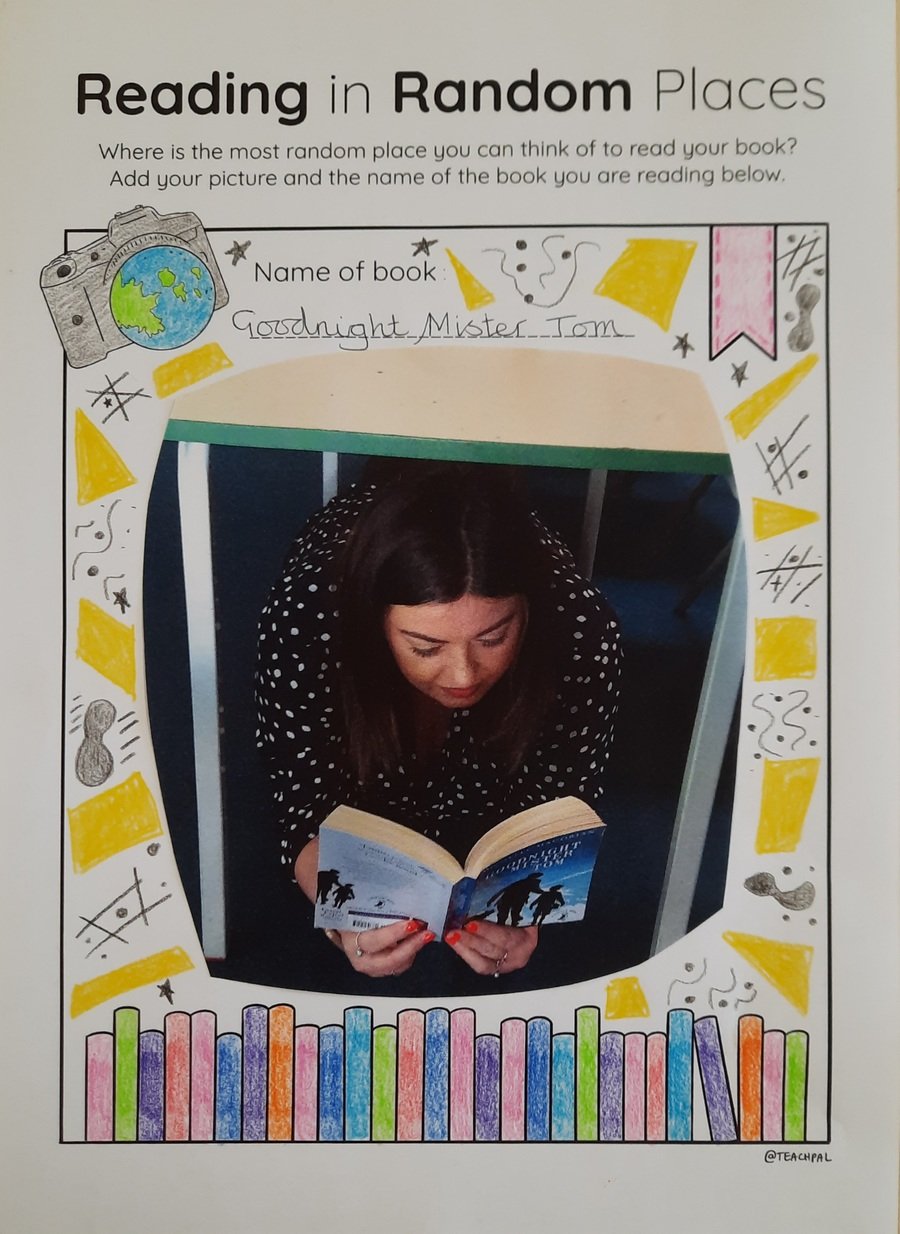 Reading in Random Places
Where is the most random place you can think of to read your book?
Add your picture and the name of the book you are reading below.
Name of book :
Goodnight Mister Tom
GOODNIGHT
MISTER
TOM
@TEACHPAL